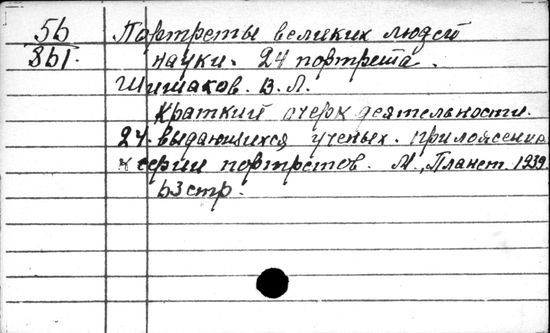 5б Портреты великих людей
8Ы. науки. 24 портрета.
Шишаков. В. Л.
Краткий очерк деятельности.
24. выдающихся ученых. приложение
к серии портретов. М., Планет. 1939
63 стр.